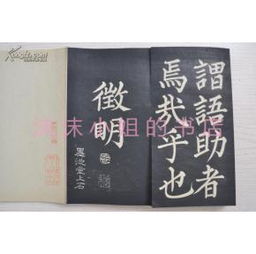 謂語助者
焉哉乎也
徵明
墨池堂上石
沫小姐的书店